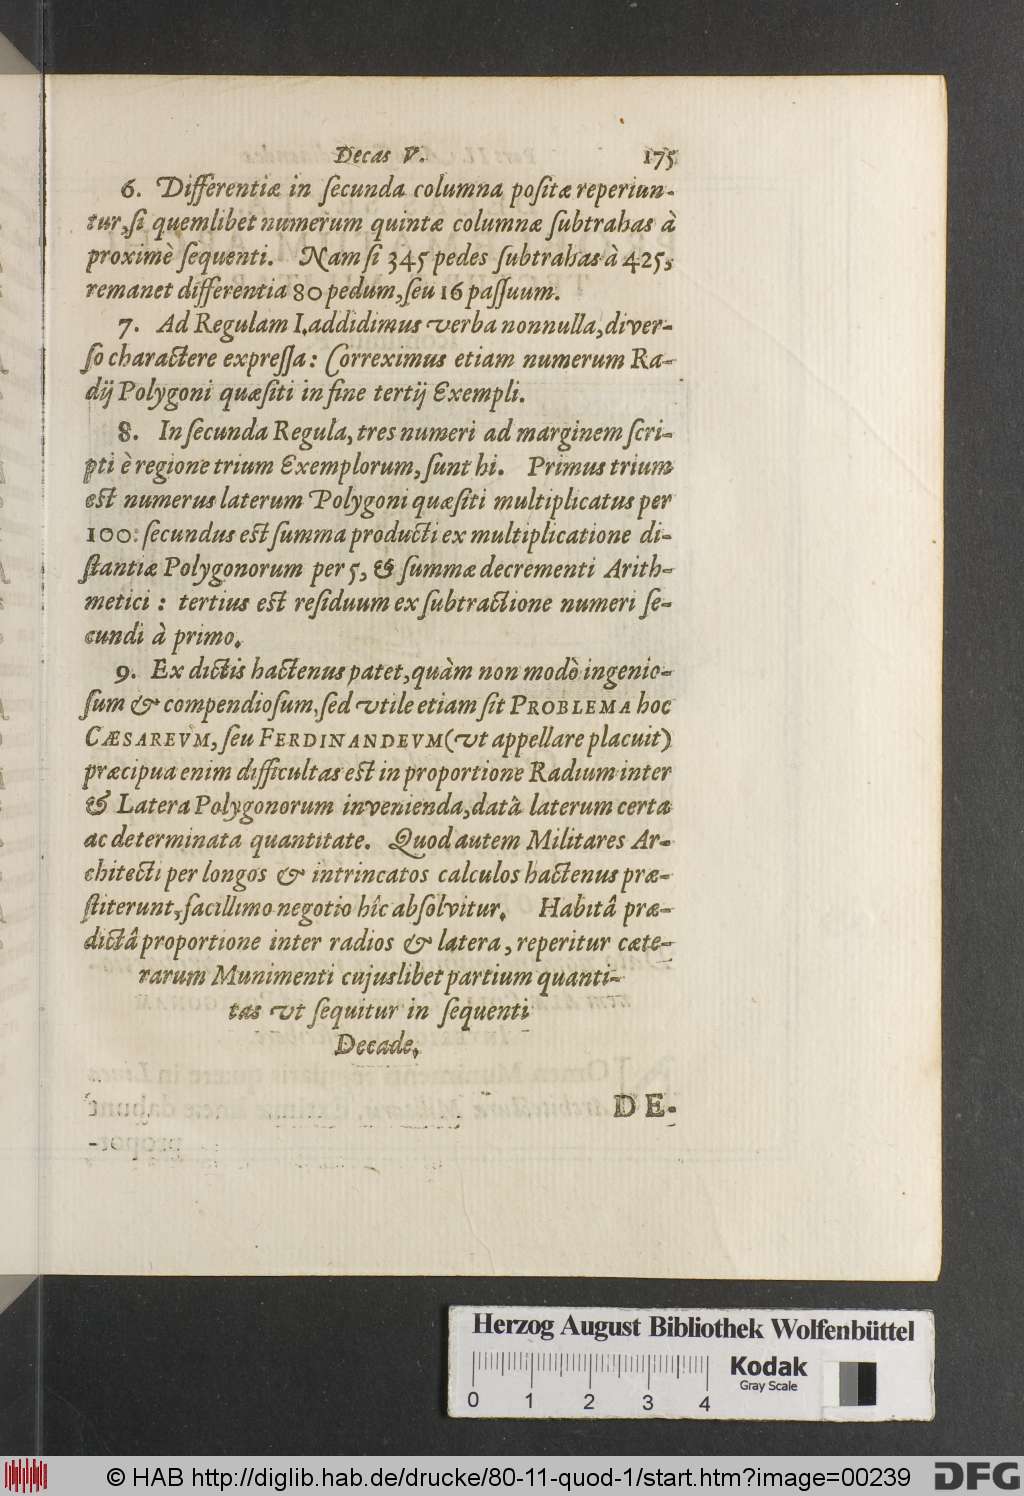 Decas V. 175
6. Differentiæ in ſecunda columna poſitæ reperiun-
tur, ſi quemlibet numerum quintæ columnæ ſubtrahas à
proximè ſequenti. Nam ſi 345 pedes ſubtrahas à 425,
remanet differentia 80 pedum, ſeu 16 paſſuum.
7. Ad Regulam I. addidimus verba nonnulla, diver-
ſo charactere expreſſa: Correximus etiam numerum Ra-
dij Polygoni quæſiti in fine tertij Exempli.
8. In ſecunda Regula, tres numeri ad marginem ſcri-
pti è regione trium Exemplorum, ſunt hi. Primus trium
est numerus laterum Polygoni quæſiti multiplicatus per
100: ſecundus est ſumma producti ex multiplicatione di-
ſtantiæ Polygonorum per 5, & ſummæ decrementi Arith-
metici: tertius est reſiduum ex ſubtractione numeri ſe-
cundi à primo.
9. Ex dictis hactenus patet, quàm non modò ingenio-
ſum & compendioſum, ſed vtile etiam ſit PROBLEMA hoc
CÆSAREVM, ſeu FERDINANDEVM (vt appellare placuit)
præcipua enim difficultas est in proportione Radium inter
& Latera Polygonorum invenienda, datâ laterum certa
ac determinata quantitate. Quod autem Militares Ar-
chitecti per longos & intrincatos calculos hactenus præ-
ſtiterunt, facillimo negotio hîc abſolvitur. Habitâ præ-
dictâ proportione inter radios & latera, reperitur cæte-
rarum Munimenti cujuslibet partium quanti-
tas vt ſequitur in ſequenti
Decade.
DE-
Herzog August Bibliothek Wolfenbüttel
Kodak
Gray Scale
0 1 2 3 4
© HAB http://diglib.hab.de/drucke/80-11-quod-1/start.htm?image=00239
DFG